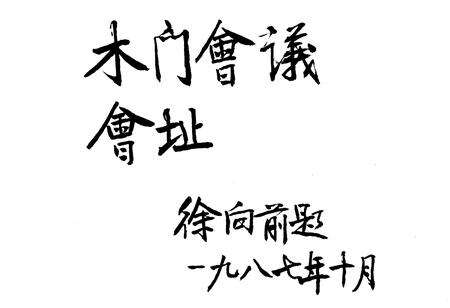 木门會議
會址
徐向前題
一九八七年十月